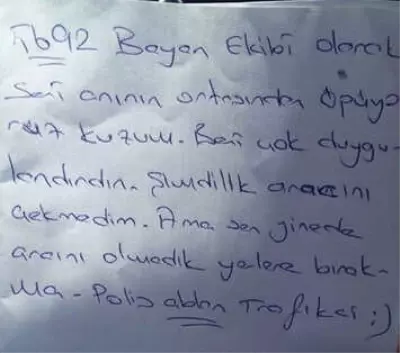 7692 Bayan Ekibi olarak
Seni anının ortasından öpüyo
ruz kuzum. Beni çok duygu-
landırdın. Şimdilik aracını
çekmedim. Ama sen yinede
aracını olmadık yelere bırak-
ma - Polis ablan Trafikci ;)